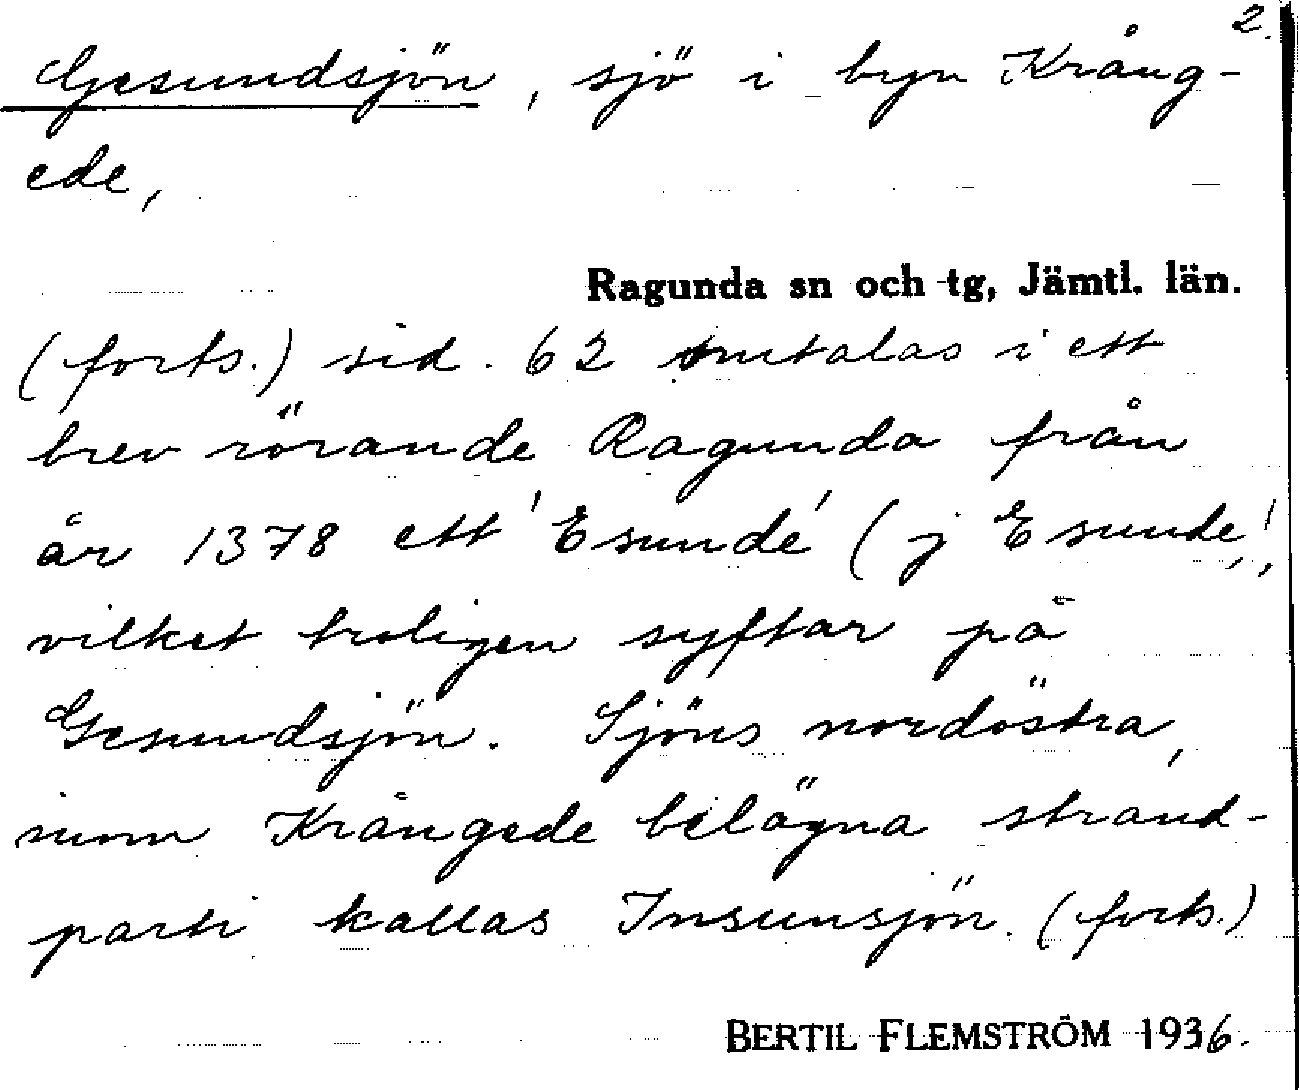 2.
Gesundsjön, sjö i byn Krång-
ede,
Ragunda sn och tg, Jämtl. län.
(forts.) sid. 62 omtalas i ett
brev rörande Ragunda från
år 1378 ett 'Esunde' (j Esunde!,
vilket troligen syftar på
Gesundsjön. Sjöns nordöstra,
inom Krångede belägna strand-
parti kallas Insunsjön. (forts.)
BERTIL FLEMSTRÖM 1936.